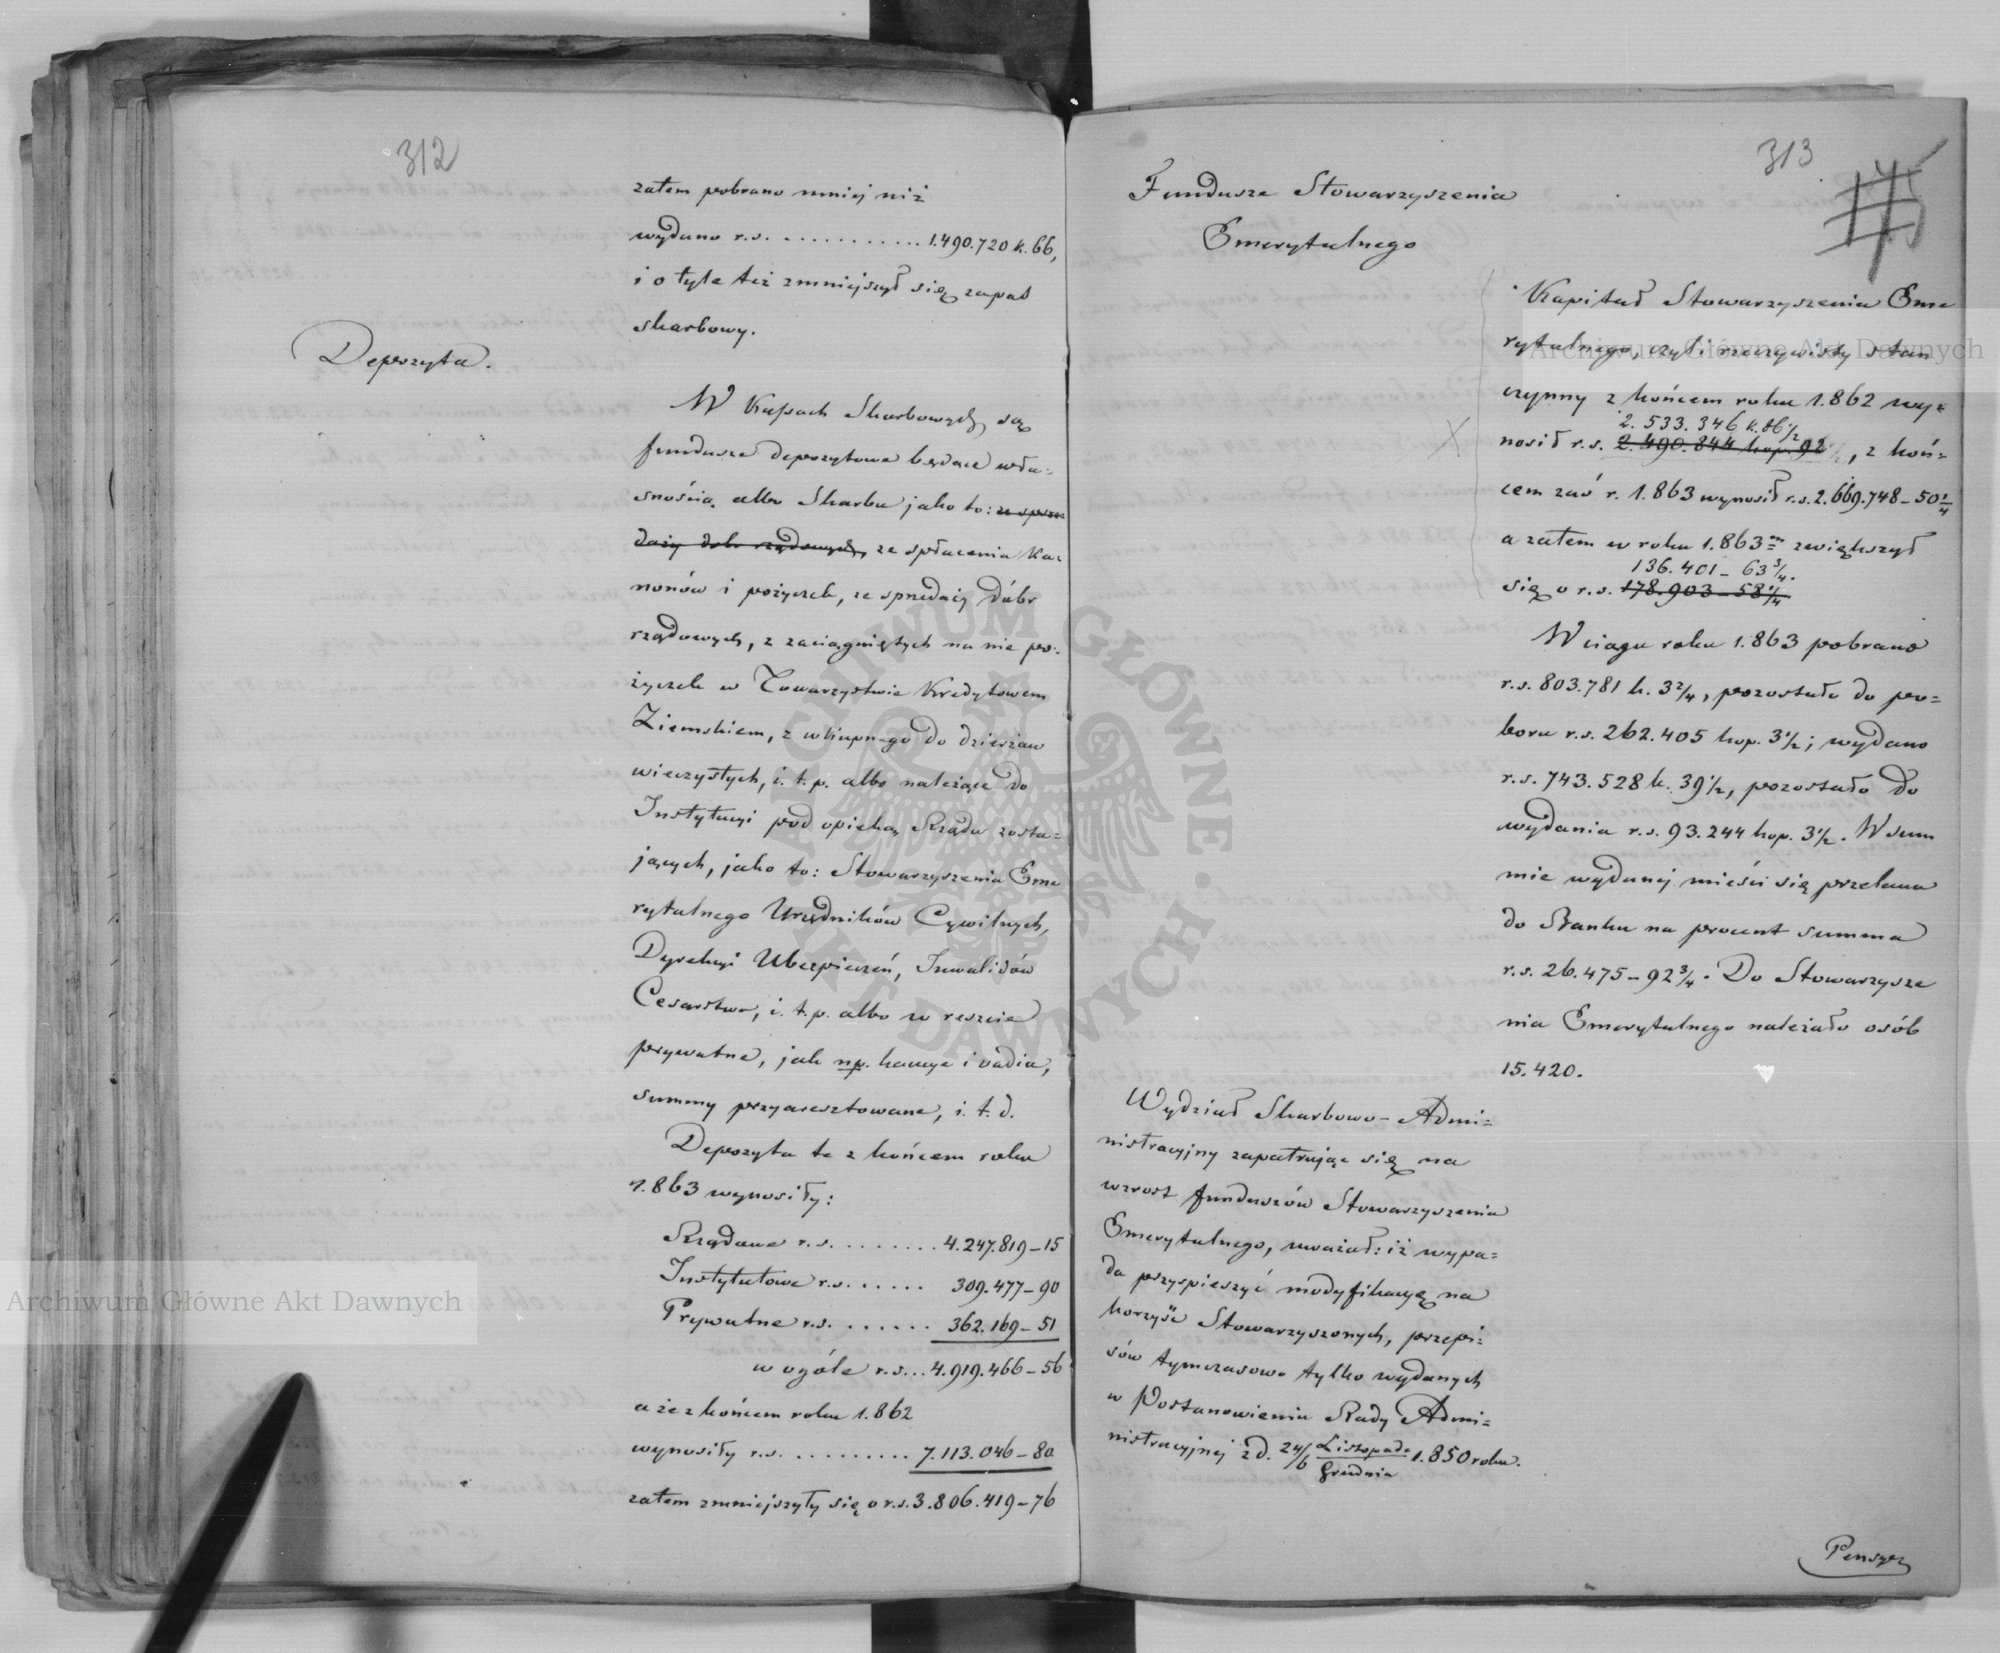 312
zatem pobrano mniej niż
wydano r.s. ........... 1.490.720 k. 66,
i o tyle też zmniejszył się zapas
skarbowy.
Depozyta.
W Kassach Skarbowych są
fundusze depozytowe będące wła=
snością albo Skarbu jako to: ze sprze=
daży dóbr rządowych, ze spłacenia ka=
nonów i pożyczek, ze sprzedaży dóbr
rządowych, z zaciągniętych na nie po=
życzek w Towarzystwie Kredytowem
Ziemskiem, z wkupnego do dzierżaw
wieczystych, i. t. p. albo należące do
Instytucyi pod opieką Rządu zosta=
jących, jako to: Stowarzyszenia Eme
rytalnego Urzędników Cywilnych,
Dyrekcyi Ubezpieczeń, Inwalidów
Cesarstwa, i. t. p. albo w reszcie
prywatne, jak np. kaucye i vadia,
summy przyaresztowane, i. t. d.
Depozyta te z końcem roku
1.863 wynosiły:
Rządowe r.s. ........ 4.247.819 - 15
Instytutowe r.s. ...... 309.477 - 90
Prywatne r.s. ...... 362.169 - 51
w ogóle r.s... 4.919.466 - 56
a że z końcem roku 1.862
wynosiły r.s. ......... 7.113.046 - 80
zatem zmniejszyły się o r.s. 3.806.419 - 76
313
Fundusze Stowarzyszenia
Emerytalnego
Kapitał Stowarzyszenia Eme
rytalnego, czyli rzeczywisty stan
czynny z końcem roku 1.862 wy=
2.533.346 k. 86 1/2
nosił r.s. 2.490.844 kop. 92 1/2, z koń=
cem zaś r. 1.863 wynosił r.s. 2.669.748 - 50 1/4
a zatem w roku 1.863m zwiększył
136.401 - 63 3/4.
się o r.s. 178.903 - 58 1/4
W ciągu roku 1.863 pobrano
r.s. 803.781 k. 3 2/4, pozostało do po=
boru r.s. 262.405 kop. 3 1/2; wydano
r.s. 743.528 k. 39 1/2, pozostało do
wydania r.s. 93.244 kop. 3 1/2. W sum
mie wydanej mieści się przelana
do Banku na procent summa
r.s. 26.475 - 92 3/4. Do Stowarzysze
nia Emerytalnego należało osób
15.420.
Wydział Skarbowo - Admi=
nistracyjny zapatrując się na
wzrost funduszów Stowarzyszenia
Emerytalnego, uważał: iż wypa=
da przyspieszyć modyfikacyę na
korzyść Stowarzyszonych, przepi=
sów tymczasowo tylko wydanych
w Postanowieniu Rady Admi=
nistracyjnej z d. 24/6 Listopada/Grudnia 1.850 roku.
Pensye
Archiwum Główne Akt Dawnych
Archiwum Główne Akt Dawnych
ARCHIWUM GŁÓWNE · AKT DAWNYCH ·